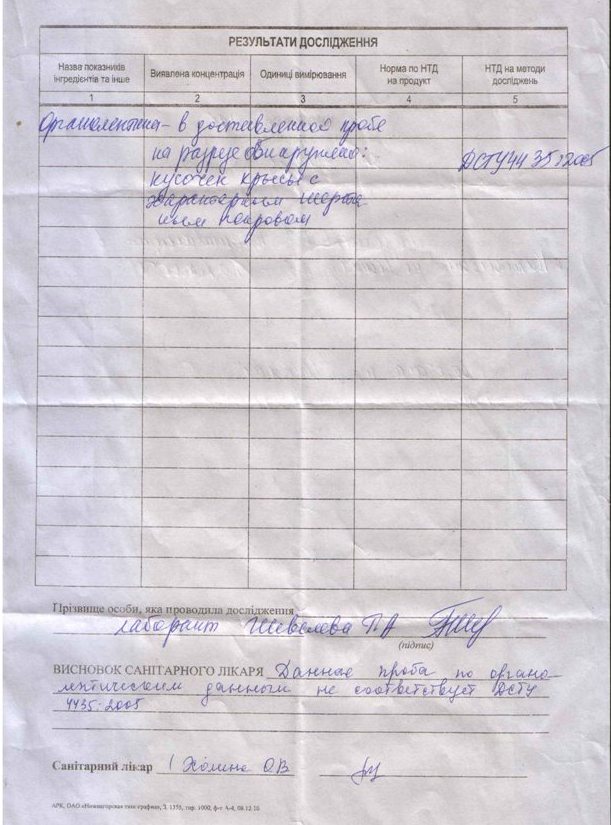 РЕЗУЛЬТАТИ ДОСЛІДЖЕННЯ
Назва показників інгредієнтів та інше Виявлена концентрація Одиниці вимірювання Норма по НТД на продукт НТД на методи досліджень
1 2 3 4 5
Органолептика - в доставленной пробе
на разрезе обнаружено:
кусочек крысы с ДСТУ 4435:2005
характерным шерстя
ным покровом
Прізвище особи, яка проводила дослідження
лаборант Шевелева
(підпис)
ВИСНОВОК САНІТАРНОГО ЛІКАРЯ Данная проба по органо
лептическим данным не соответствует ДСТУ
4435:2005
Санітарний лікар О.В
АРК, ОАО «Нижнегорская типография», З. 1356, тир. 1000, ф-т А-4, 08.12.10